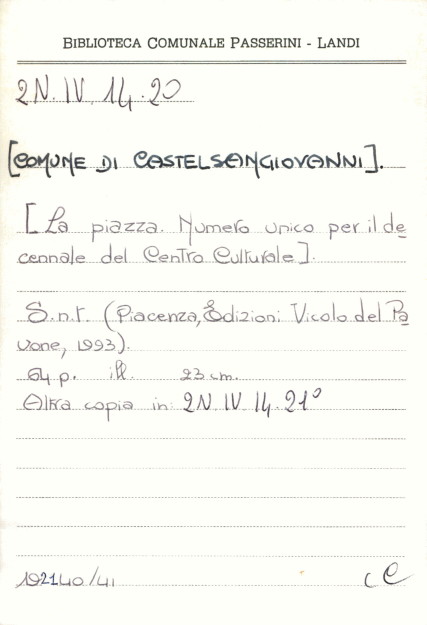 BIBLIOTECA COMUNALE PASSERINI - LANDI
2N. IV. 14. 20
[COMUNE DI CASTELSANGIOVANNI].
[La piazza. Numero unico per il de
cennale del Centro Culturale].
S.n.t. (Piacenza, Edizioni Vicolo del Pa
vone, 1993).
64 p. ill. 23 cm.
Altra copia in: 2N. IV. 14. 21°
192140/41